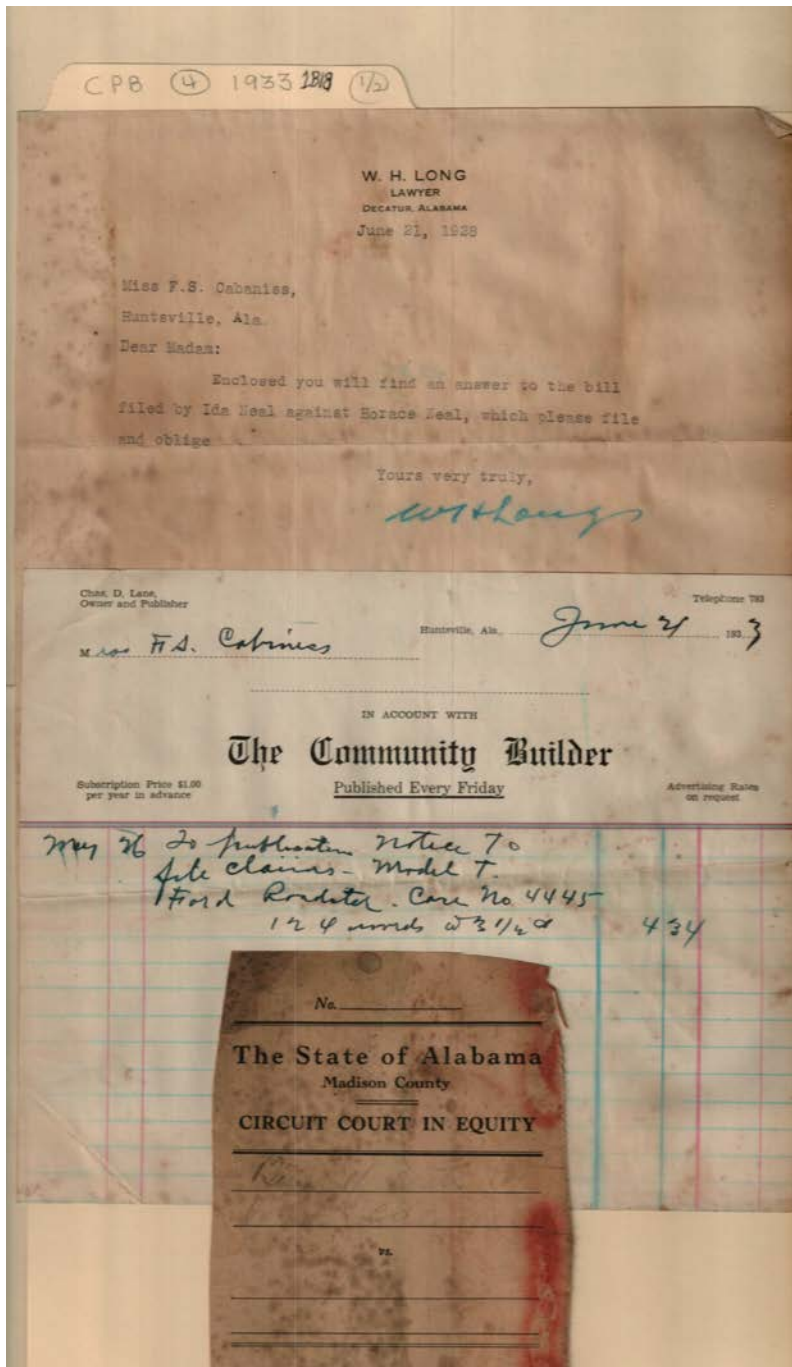 CPB 4 1933 1/2
W. H. LONG
LAWYER
DECATUR, ALABAMA
June 21, 1928
Miss F.S. Cabaniss,
Huntsville, Ala.
Dear Madam:
Enclosed you will find an answer to the bill
filed by Ida Neal against Horace Neal, which please file
and oblige
Yours very truly,
W H Long
Chas. D. Lane,
Owner and Publisher
Telephone 783
Huntsville, Ala., June 21, 1933
Miss F.S. Cabiness
IN ACCOUNT WITH
The Community Builder
Subscription Price $1.00
per year in advance
Published Every Friday
Advertising Rates
on request
May 26 To publication notice To
file claims - Model T.
Ford Roadster. Case No. 4445
124 words @ 3 1/2 ¢ 4 34
No.
The State of Alabama
Madison County
CIRCUIT COURT IN EQUITY
vs.